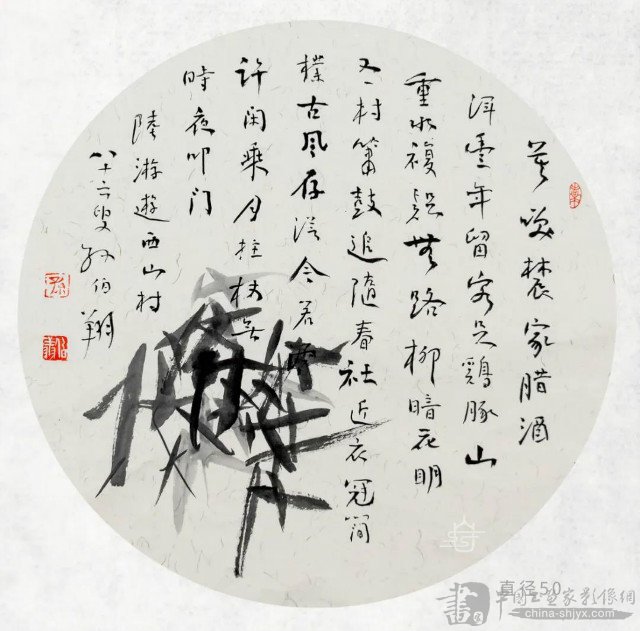 莫笑農家腊酒
渾豐年留客足鷄豚山
重水複疑無路柳暗花明
又一村簫鼓追隨春社近衣冠簡
樸古風存從今若
許闲乘月拄杖無
時夜叩门
陸游遊西山村
八十六叟孙伯翔
直径50
中国书画家影像網
china-shjyx.com